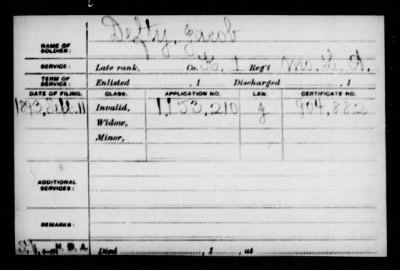 Defty, Jacob
NAME OF SOLDIER:
SERVICE: Late rank, Co. 1 Reg't Mo. L. A.
TERM OF SERVICE: Enlisted , 1 Discharged , 1
DATE OF FILING. CLASS. APPLICATION NO. LAW. CERTIFICATE NO.
1893, Feb. 11 Invalid, 1,153,210 j 904,882
Widow,
Minor,
ADDITIONAL SERVICES:
REMARKS:
H.B.A. Died , 1 , at